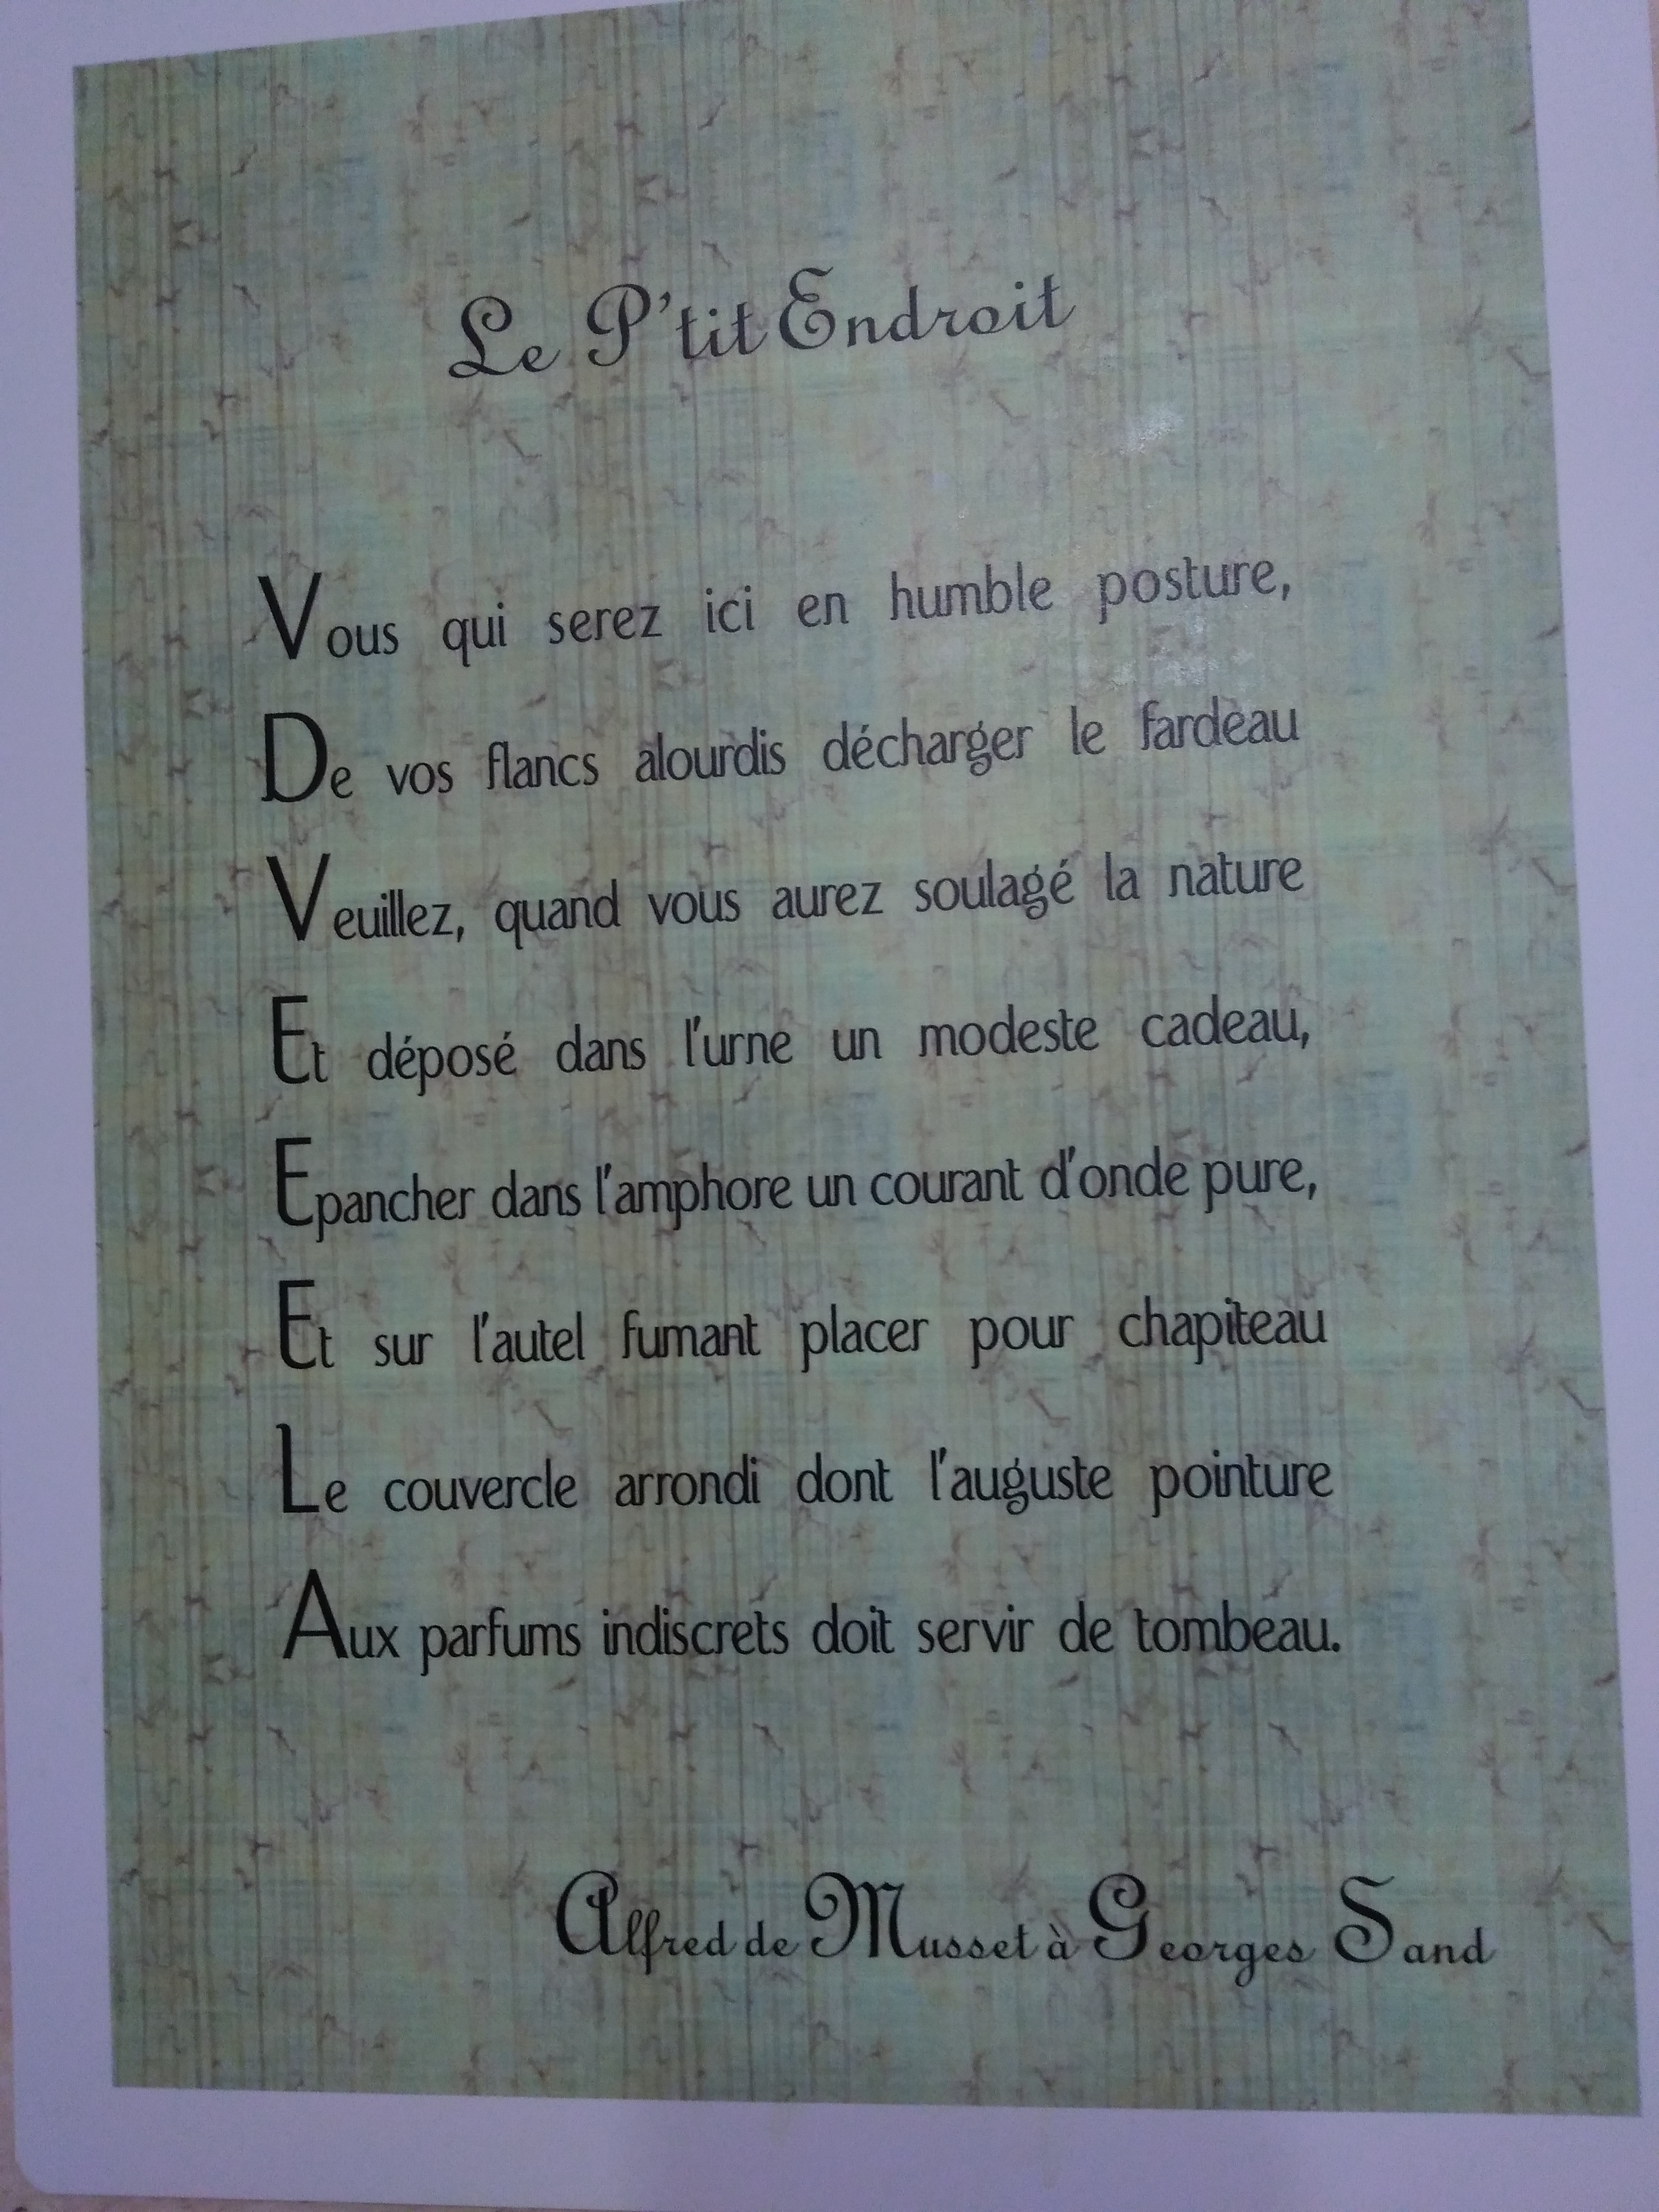 Le P'tit Endroit
Vous qui serez ici en humble posture,
De vos flancs alourdis décharger le fardeau
Veuillez, quand vous aurez soulagé la nature
Et déposé dans l'urne un modeste cadeau,
Epancher dans l'amphore un courant d'onde pure,
Et sur l'autel fumant placer pour chapiteau
Le couvercle arrondi dont l'auguste pointure
Aux parfums indiscrets doit servir de tombeau.
Alfred de Musset à Georges Sand